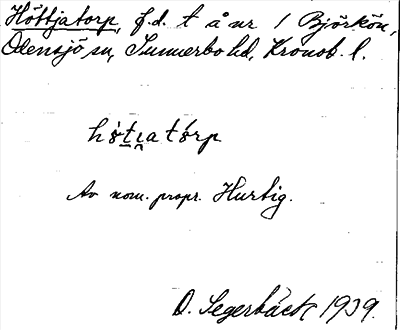 Höttjatorp, f.d. t å nr 1 Björkön,
Odensjö sn, Sunnerbo hd, Kronob. l.
Av nom. propr. Hurtig.
D. Segerbäck 1939.